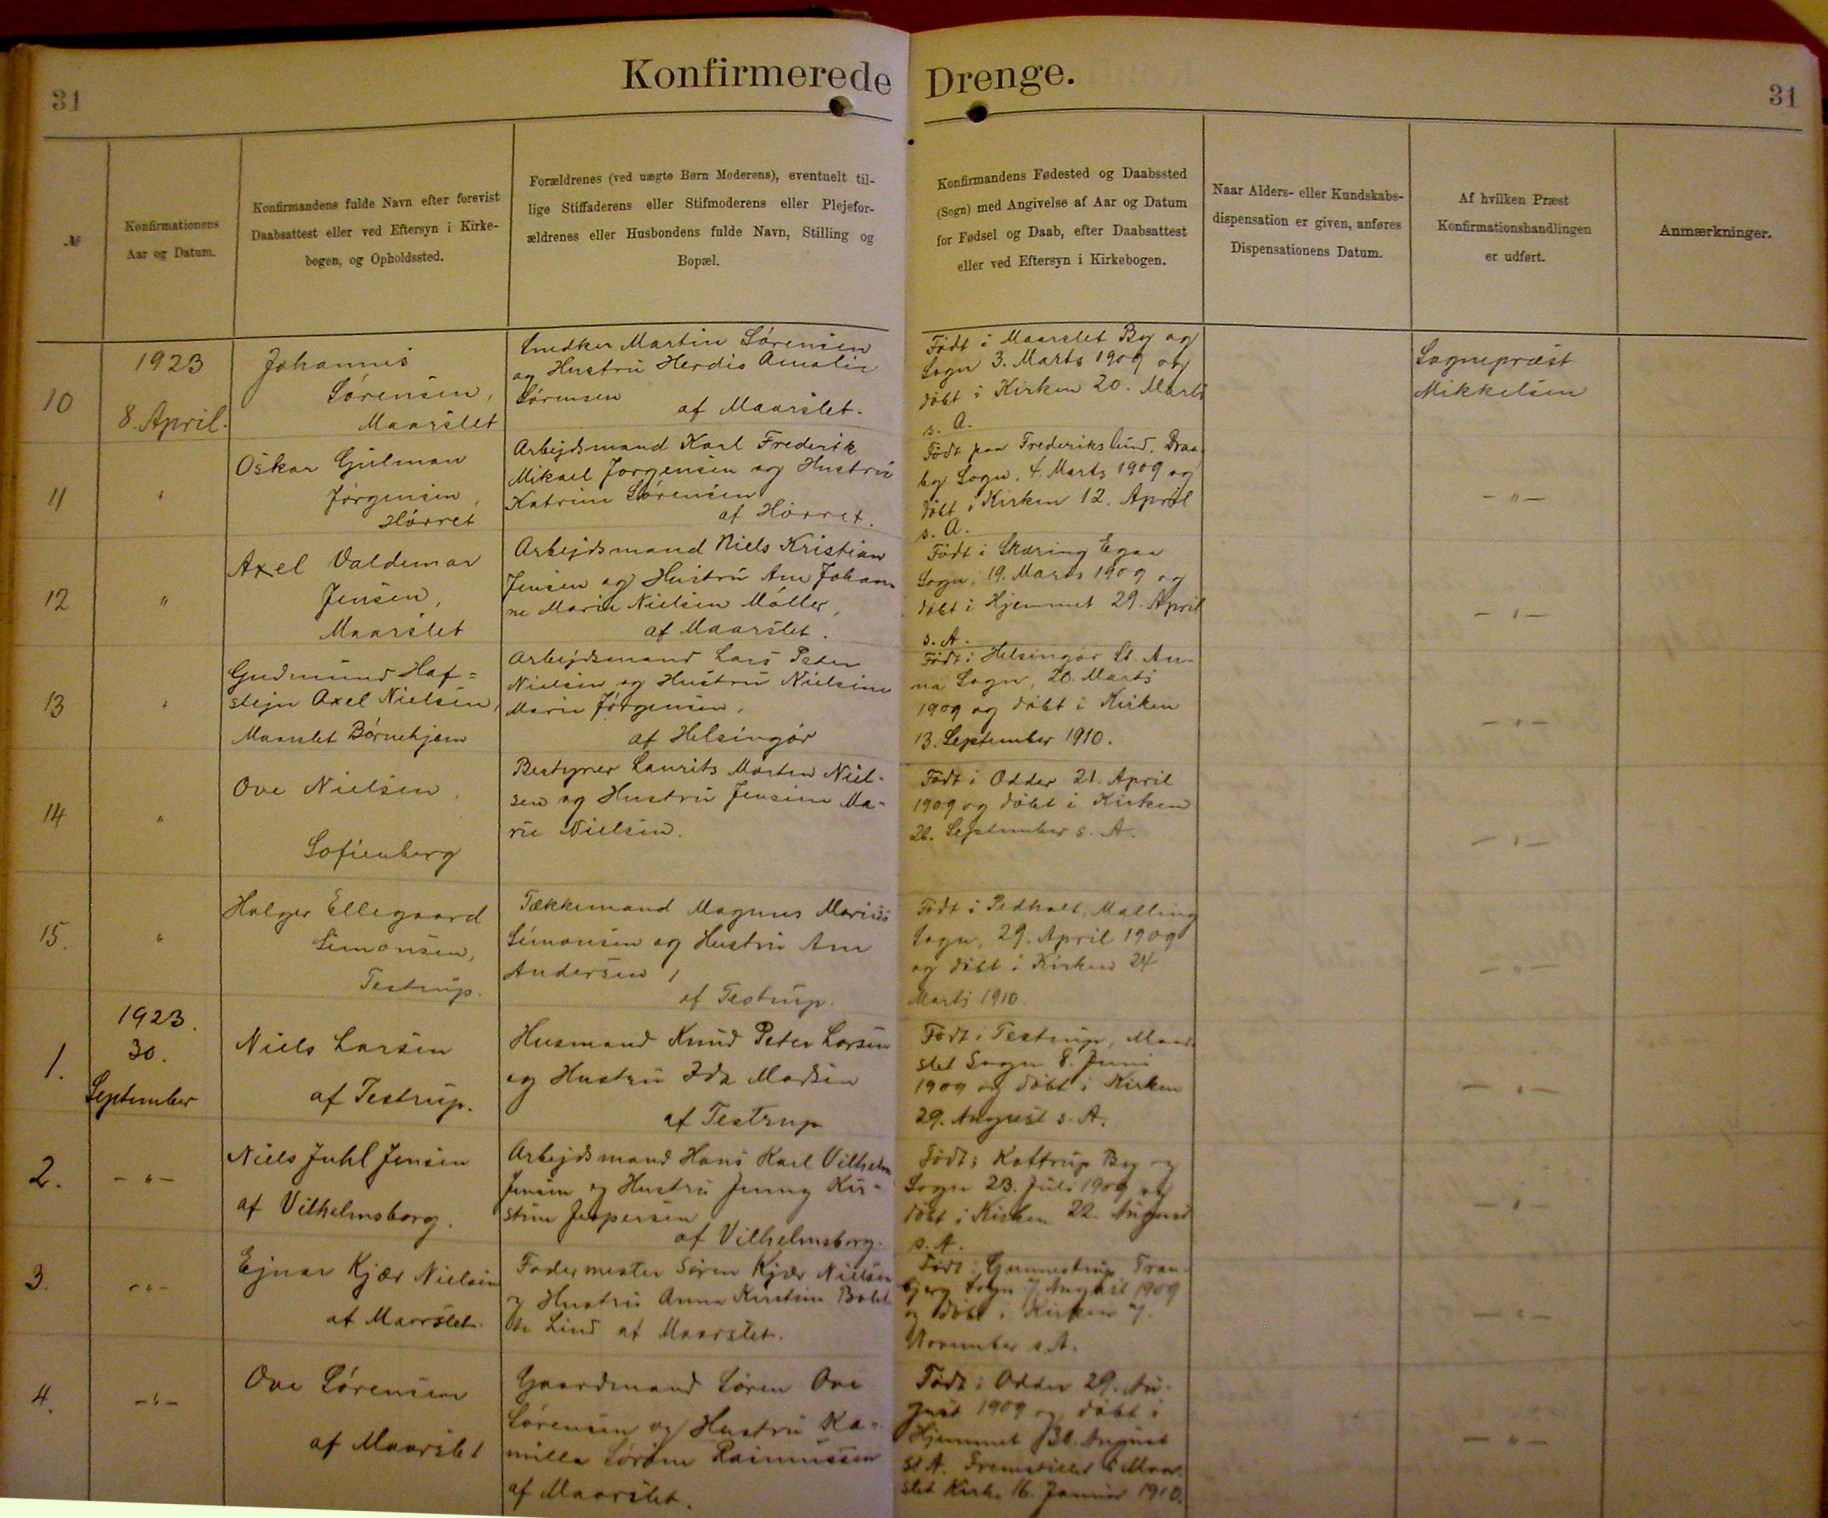 Konfirmerede Drenge.
31
31
№
Konfirmationens
Aar og Datum.
Konfirmandens fulde Navn efter forevist
Daabsattest eller ved Eftersyn i Kirke-
bogen, og Opholdssted.
Forældrenes (ved uægte Børn Moderens), eventuelt til-
lige Stiffaderens eller Stifmoderens eller Plejefor-
ældrenes eller Husbondens fulde Navn, Stilling og
Bopæl.
Konfirmandens Fødested og Daabssted
(Sogn) med Angivelse af Aar og Datum
for Fødsel og Daab, efter Daabsattest
eller ved Eftersyn i Kirkebogen.
Naar Alders- eller Kundskabs-
dispensation er given, anføres
Dispensationens Datum.
Af hvilken Præst
Konfirmationshandlingen
er udført.
Anmærkninger.
10
1923
8. April.
Johannes
Sørensen,
Maarslet
Smedker Martin Sørensen
og Hustru Herdis Amalie
Sørensen
af Maarslet.
Født i Maarslet By og
Sogn 3. Marts 1909 og
døbt i Kirken 20. Marts
s. A.
Sognepræst
Mikkelsen
11
"
Oskar Gulman
Jørgensen,
Hørret
Arbejdsmand Karl Frederik
Mikael Jørgensen og Hustru
Katrine Sørensen
af Hørret.
Født paa Frederikslund, Draa-
by Sogn, 4. Marts 1909 og
døbt i Kirken 12. April
s. A.
- " -
12
"
Axel Valdemar
Jensen,
Maarslet
Arbejdsmand Niels Kristian
Jensen og Hustru Ane Johan-
ne Marie Nielsen Møller,
af Maarslet.
Født i Skæring Egaa
Sogn, 19. Marts 1909 og
døbt i Hjemmet 29. April
s. A.
- " -
13
"
Gudmund Haf=
stejn Axel Nielsen,
Maarslet Børnehjem
Arbejdsmand Lars Peter
Nielsen og Hustru Nielsine
Marie Jørgensen,
af Helsingør
Født i Helsingør St. An-
na Sogn, 20. Marts
1909 og døbt i Kirken
13. September 1910.
- " -
14
"
Ove Nielsen,
Sofienberg
Bestyrer Laurits Morten Niel-
sen og Hustru Jensine Ma-
rie Nielsen.
Født i Odder 21. April
1909 og døbt i Kirken
September s. A.
- " -
15.
"
Holger Ellegaard
Simonsen,
Testrup.
Tækkemand Magnus Marius
Simonsen og Hustru Ane
Andersen,
af Testrup.
Født i Pedholt, Malling
Sogn, 29. April 1909
og døbt i Kirken 24
Marts 1910.
- " -
1.
1923.
30.
September
Niels Larsen
af Testrup.
Husmand Knud Peter Larsen
og Hustru Ida Madsen
af Testrup
Født i Testrup, Maar-
slet Sogn 8. Juni
1909 og døbt i Kirken
29. August s. A.
- " -
2.
- " -
Niels Juhl Jensen
af Vilhelmsborg.
Arbejdsmand Hans Karl Vilhelm
Jensen og Hustru Jenny Kir-
stine Jespersen
af Vilhelmsborg.
Født i Kattrup By og
Sogn 23. Juli 1909 og
døbt i Kirken 22. August
s. A.
- " -
3.
- " -
Ejnar Kjær Nielsen
af Maarslet.
Fodermester Søren Kjær Nielsen
og Hustru Anna Kirstine
Lind af Maarslet.
Født i Gunnestrup Tran-
bjerg Sogn 7 August 1909
og døbt i Kirken 7.
November s. A.
- " -
4.
- " -
Ove Sørensen
af Maarslet
Gaardmand Søren Ove
Sørensen og Hustru Ka-
milla Rasmussen
af Maarslet.
Født i Odder 29. Au-
gust 1909 og døbt i
Hjemmet 31. August
s. A. Fremstillet i Maar-
slet Kirke 16. Januar 1910.
- " -